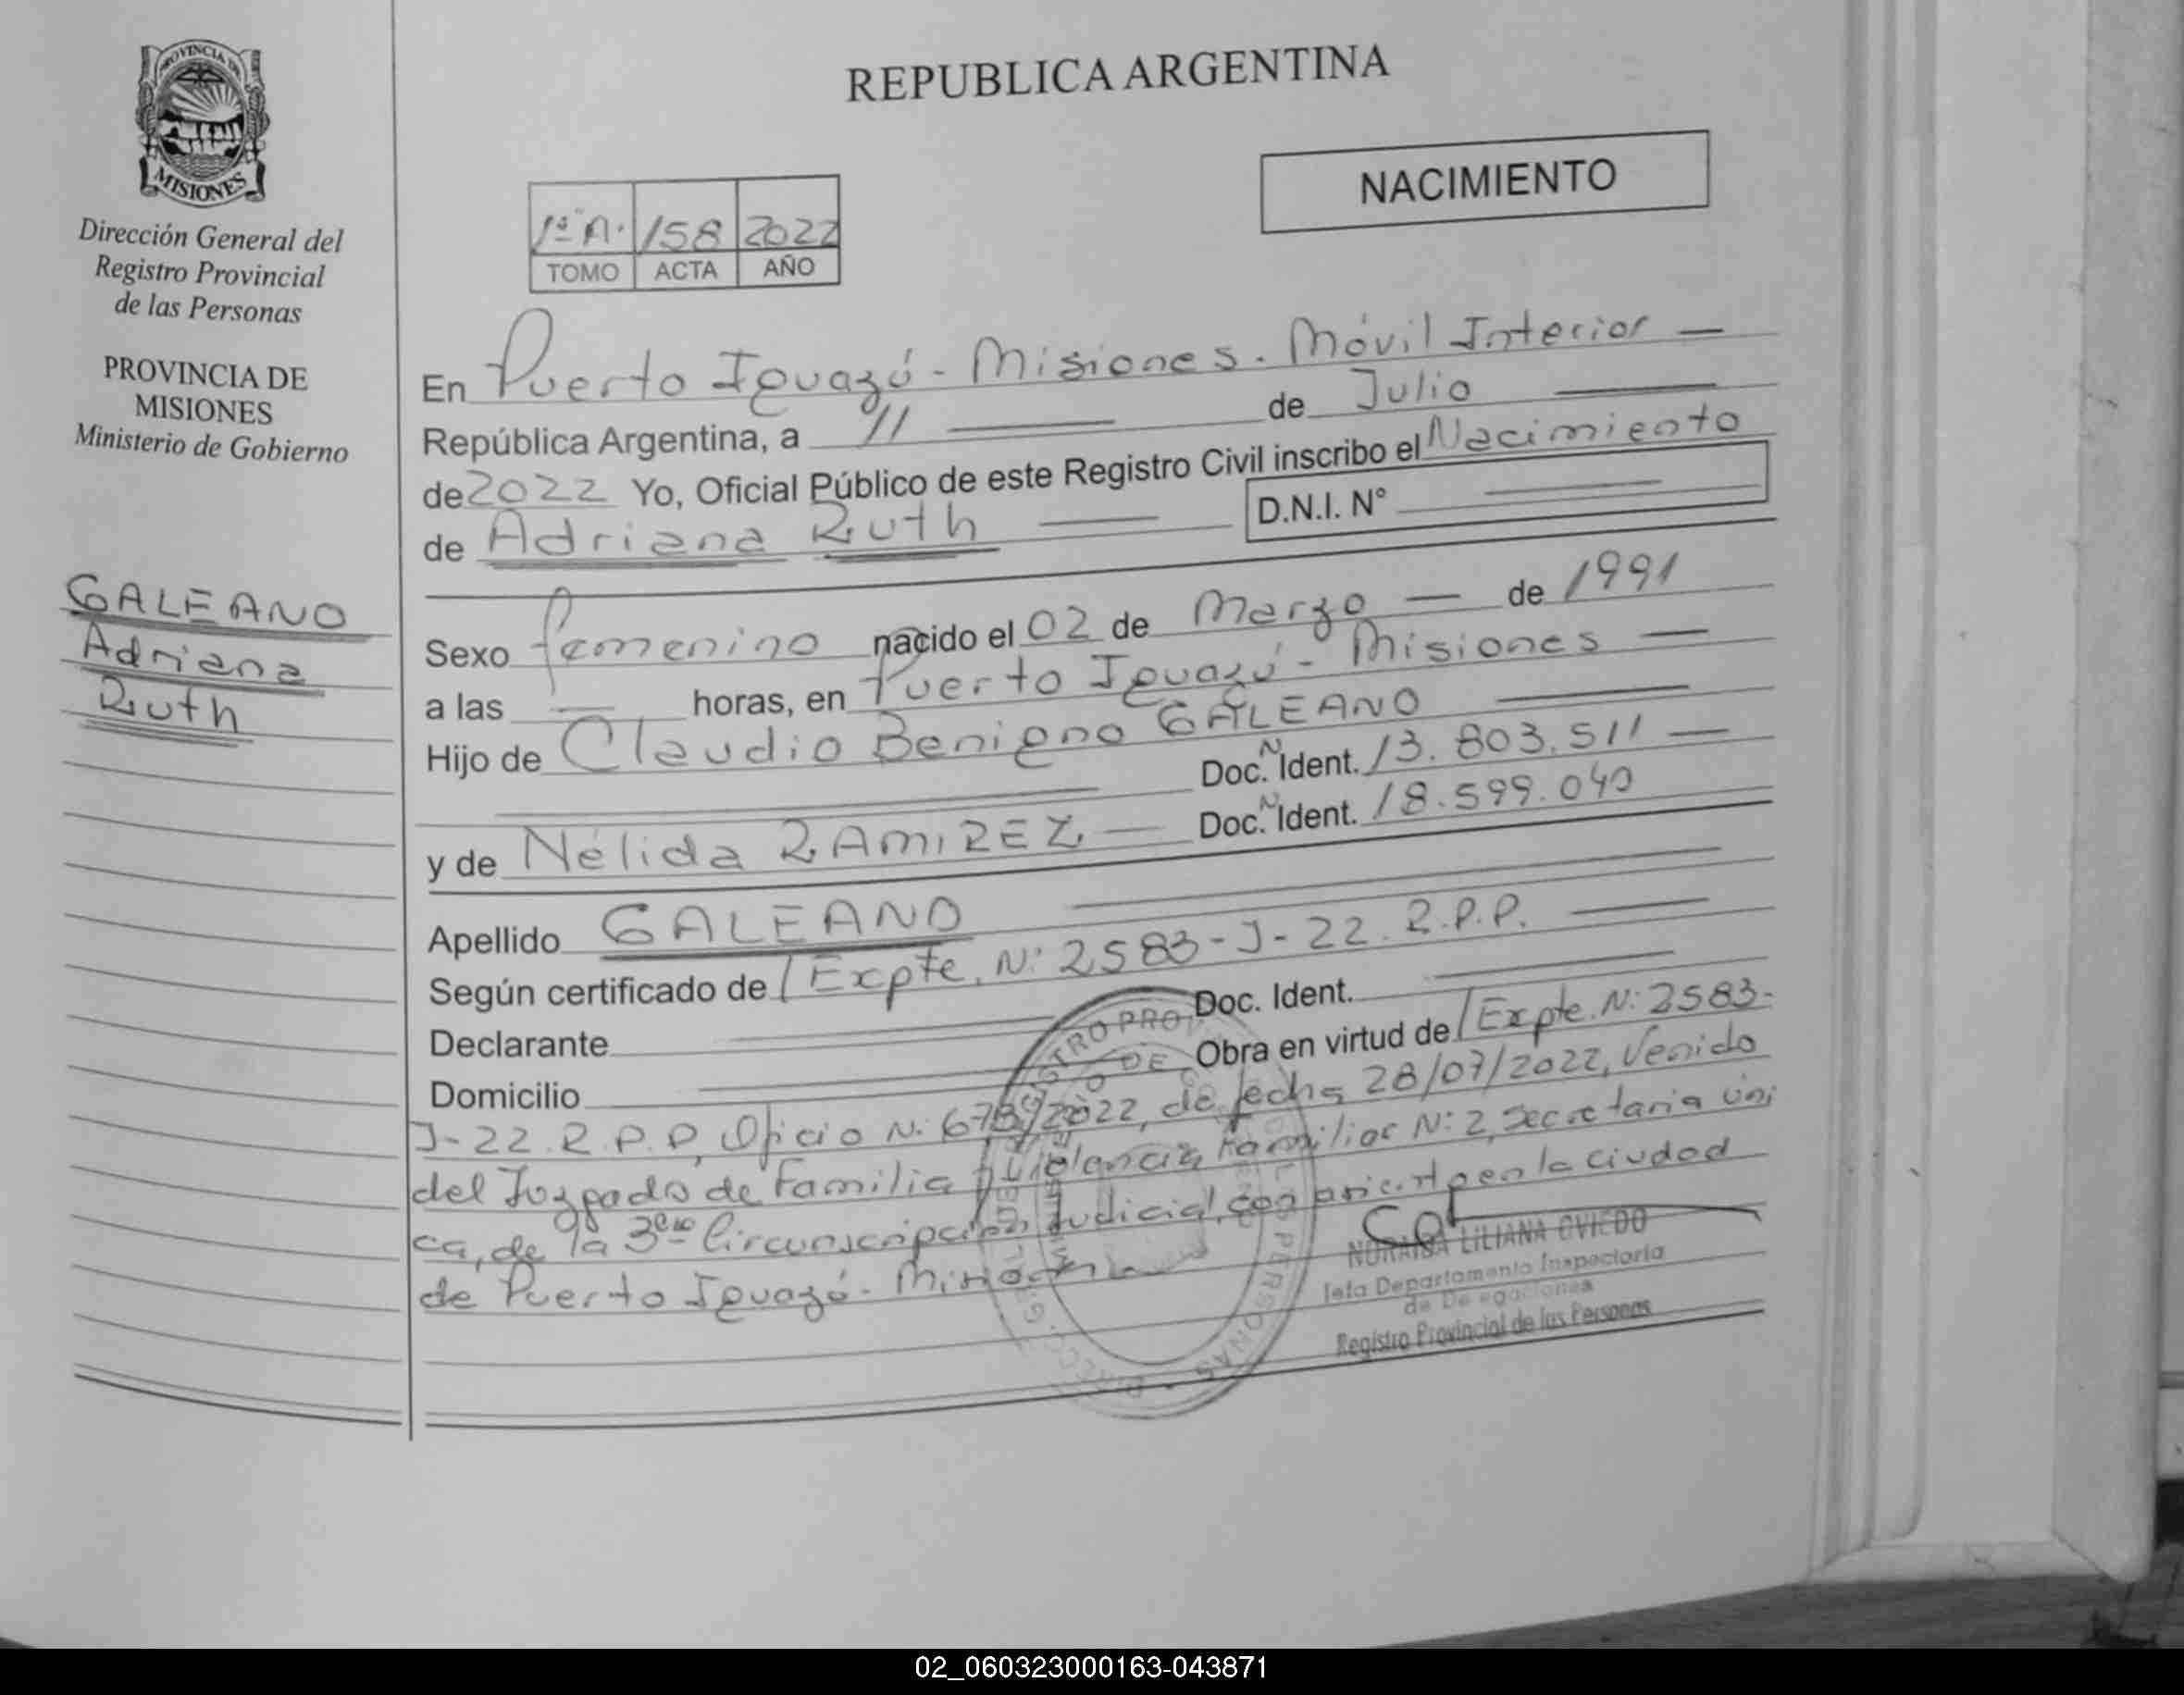 PROVINCIA DE
MISIONES
Dirección General del
Registro Provincial
de las Personas
PROVINCIA DE
MISIONES
Ministerio de Gobierno
GALEANO
Adriana
Ruth
REPUBLICA ARGENTINA
NACIMIENTO
1º A. 158 2022
TOMO ACTA AÑO
En Puerto Iguazú - Misiones. Móvil Interior —
República Argentina, a 11 — de Julio —
de 2022 Yo, Oficial Público de este Registro Civil inscribo el Nacimiento
de Adriana Ruth — D.N.I. N° —
Sexo femenino nacido el 02 de Marzo — de 1991
a las — horas, en Puerto Iguazú - Misiones —
Hijo de Claudio Benigno GALEANO —
Doc. N Ident. 13.803.511 —
y de Nélida RAMIREZ — Doc. N Ident. 18.599.040
Apellido GALEANO —
Según certificado de / Expte. N: 2583-J-22. R.P.P. —
Declarante — Doc. Ident. —
Domicilio — Obra en virtud de / Expte. N: 2583-
J-22. R.P.P, Oficio N: /2022, de fecha 28/07/2022, Venido
del Juzgado de Familia y Violencia Familiar N: 2, Secretaria úni
ca, de la 3era Circunscripción Judicial, con asiento en la ciudad
de Puerto Iguazú - Misiones
LILIANA OVIEDO
Jefa Departamento Inspectoría
de Delegaciones
Registro Provincial de las Personas
02_060323000163-043871